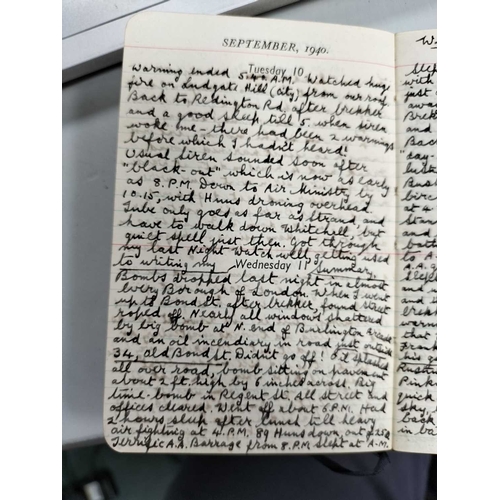 SEPTEMBER, 1940.
Tuesday 10
Warning ended 5.40 A.M. Watched huge
fire on Ludgate Hill (City) from our roof.
Back to Redington Rd after brekker
and a good sleep till 5, when siren
woke me – there had been 2 warnings
before which I hadn't heard!
Usual siren sounded soon after
"black-out" which is now as early
as 8.P.M. Down to Air Ministry by
10.15, with Huns droning overhead.
Tube only goes as far as Strand, and
have to walk down Whitehall, but
quiet spell just then. Got through
my last Night Watch well, getting used
to writing my Summary.
Wednesday 11
Bombs dropped last night in almost
every Borough of London. When I went
up to Bond St, after brekker, found street
roped off. Nearly all windows shattered
by big bomb at N. end of Burlington Arcade
and an oil incendiary in road just outside
34, Old Bond St. Didn't go off! Oil splashed
all over road, bomb sitting on pavement
about 2 ft. high by 6 inches across. Big
time-bomb in Regent St. All street and
offices cleared. Went off about 6.P.M. Had
2 hours sleep after lunch till heavy
air fighting at 4.P.M. 89 Huns down out of 250
Terrific A.A. Barrage from 8.P.M. Slept at A.M.